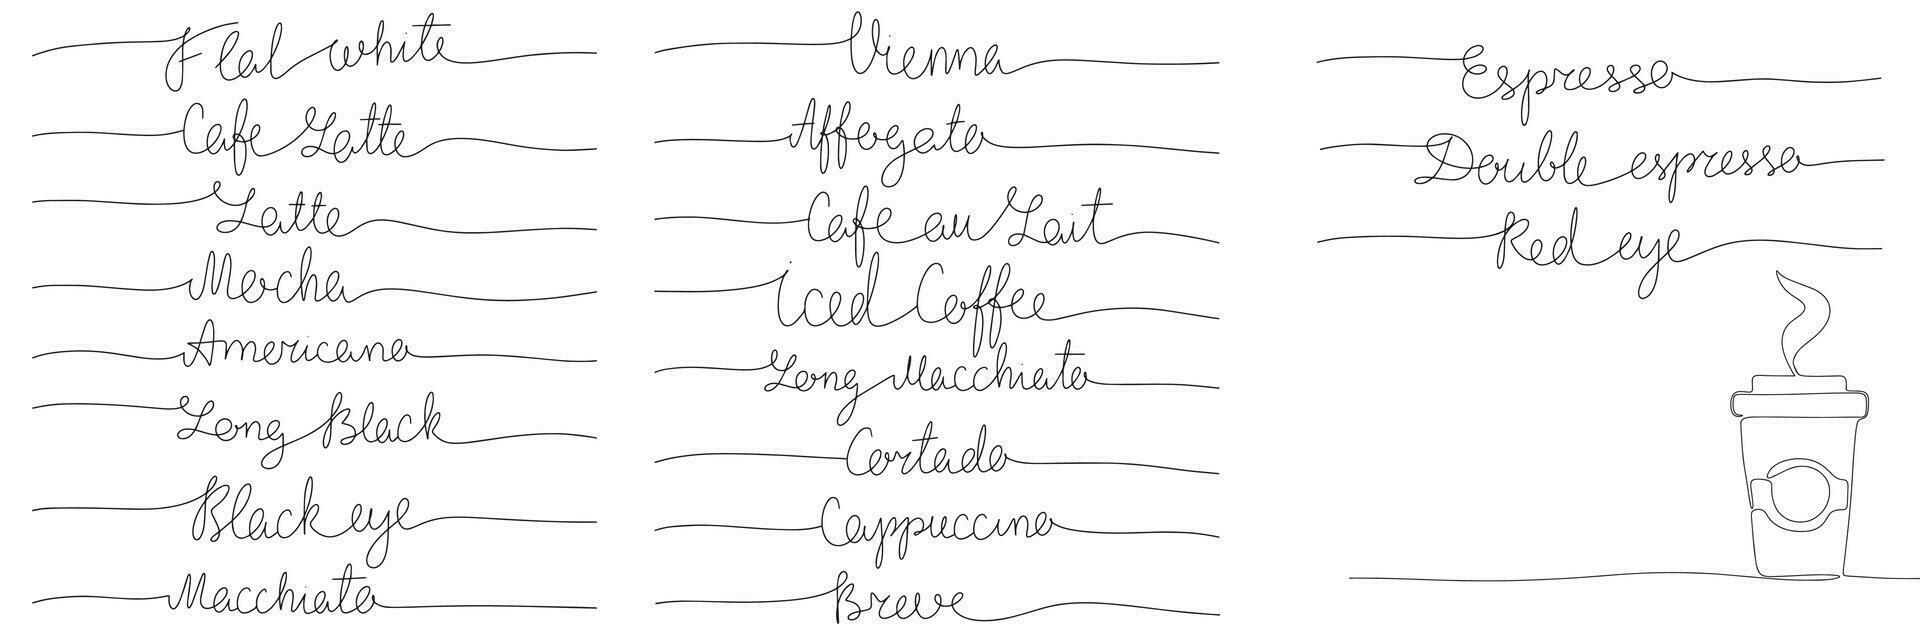 Flat white
Cafe Latte
Latte
Mocha
Americano
Long Black
Black eye
Macchiato
Vienna
Affogato
Cafe au Lait
iced Coffee
Long Macchiato
Cortado
Cappuccino
Breve
Espresso
Double espresso
Red eye